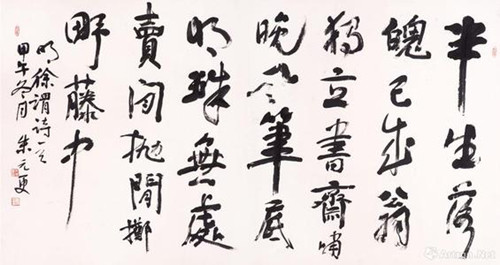 半生落
魄已成翁
独立書齋啸
晚风筆底
明珠無處
賣闲抛閒擲
野藤中
明徐渭诗一首
甲午冬月 朱元更
Artron.Net